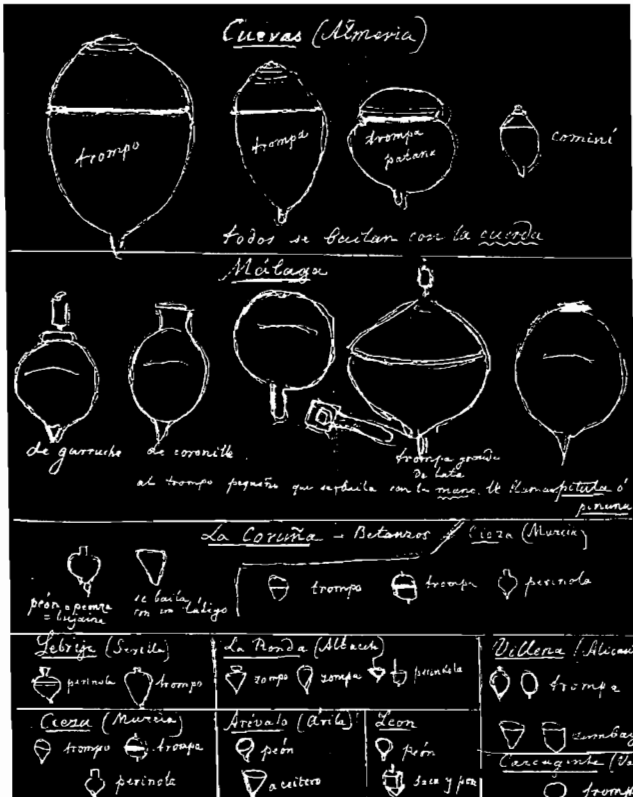 Cuevas (Almeria)
trompo
trompa
trompa
patana
cominí
todos se bailan con la cuerda
Málaga
de garrucha
de coronilla
trompa grande
de lata
al trompo pequeño que se baila con la mano, le llaman pitula ó
La Coruña - Betanzos
Cieza (Murcia)
peón o peonza
se baila
con un látigo
trompo
trompa
perinola
Lebrija (Sevilla)
perinola
trompo
La Ronda (Albacete
zompo
zompa
perindola
Villena (Alican
trompa
Cieza (Murcia)
trompo
trompa
perinola
Arévalo (Ávila)
peón
aceitero
Leon
peón
saca y pon
Carcagente (Va
tromp